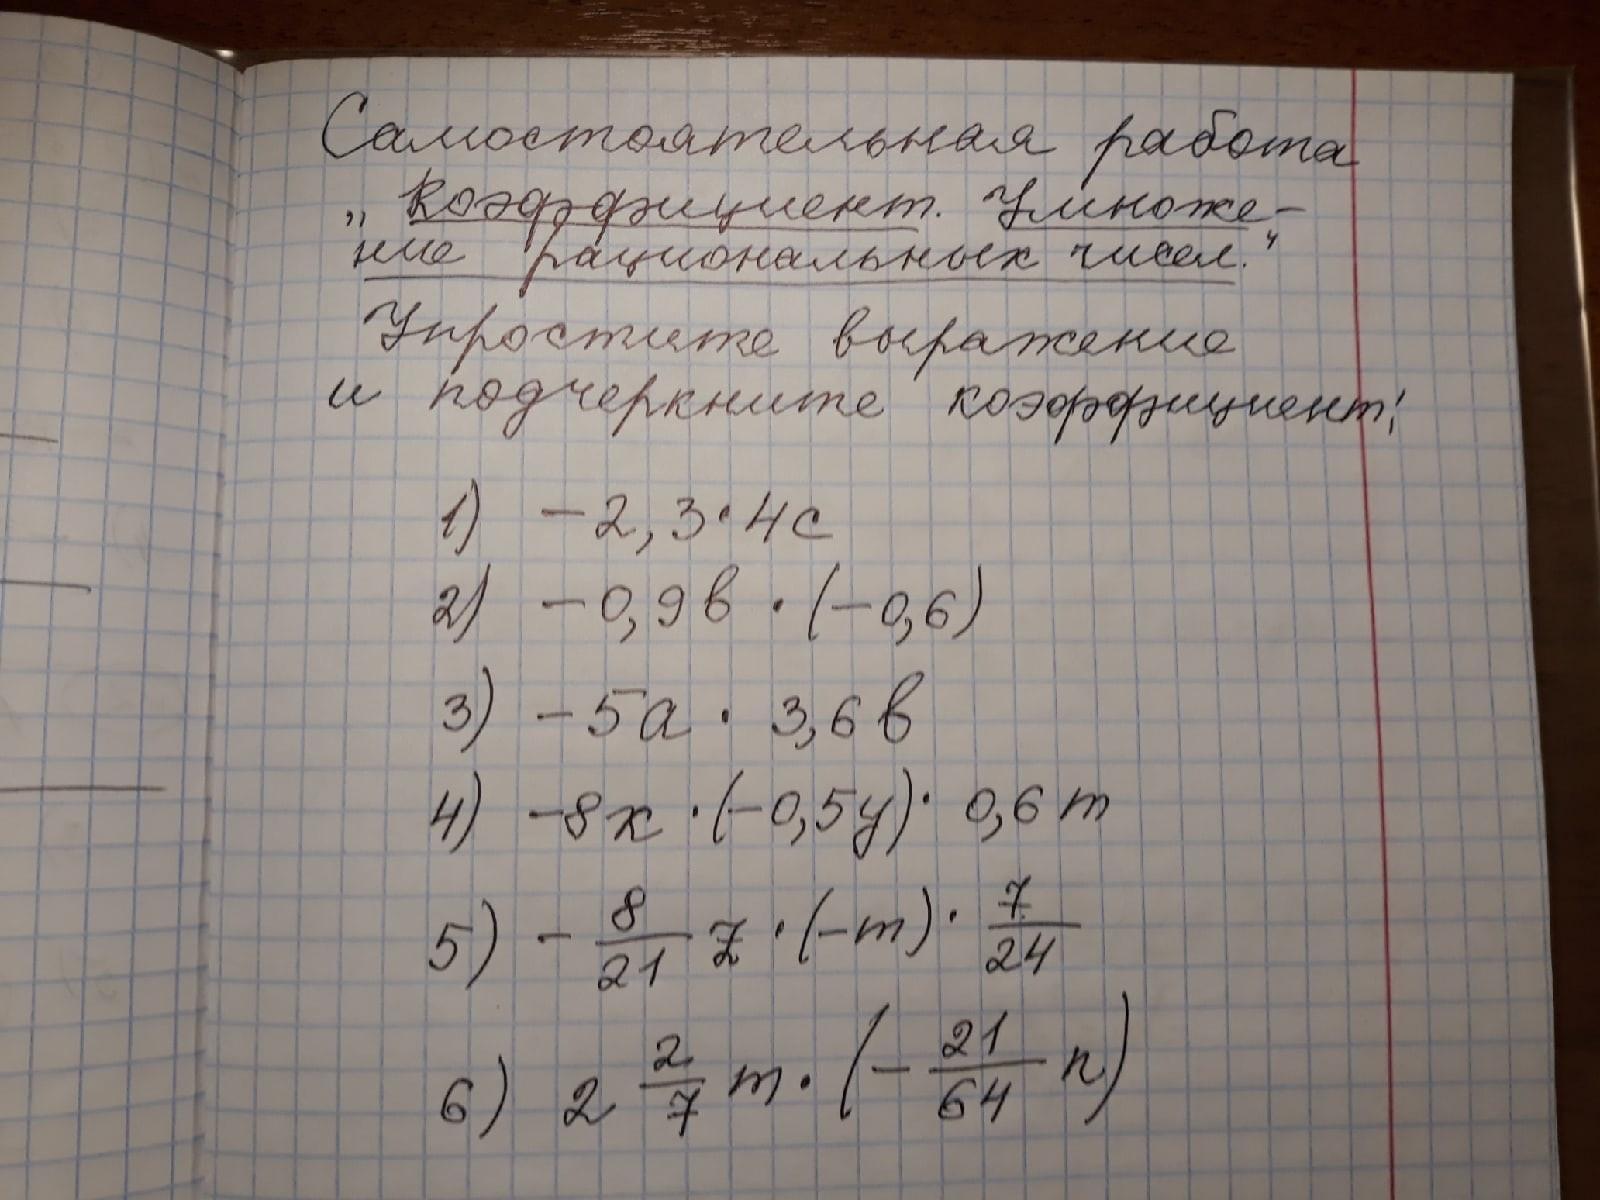 Самостоятельная работа
„Коэффициент. Умноже-
ние рациональных чисел."
Упростите выражение
и подчеркните коэффициент:
1) -2,3·4c
2) -0,9в ·(-0,6)
3) -5a · 3,6в
4) -8x ·(-0,5y)· 0,6m
5) - 8/21 z ·(-m)· 7/24
6) 2 2/7 m·(- 21/64 n)